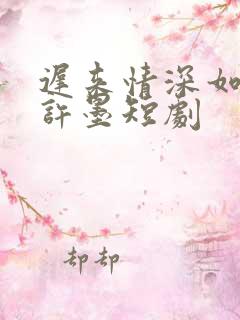 遲來情深如
許墨短劇
却却